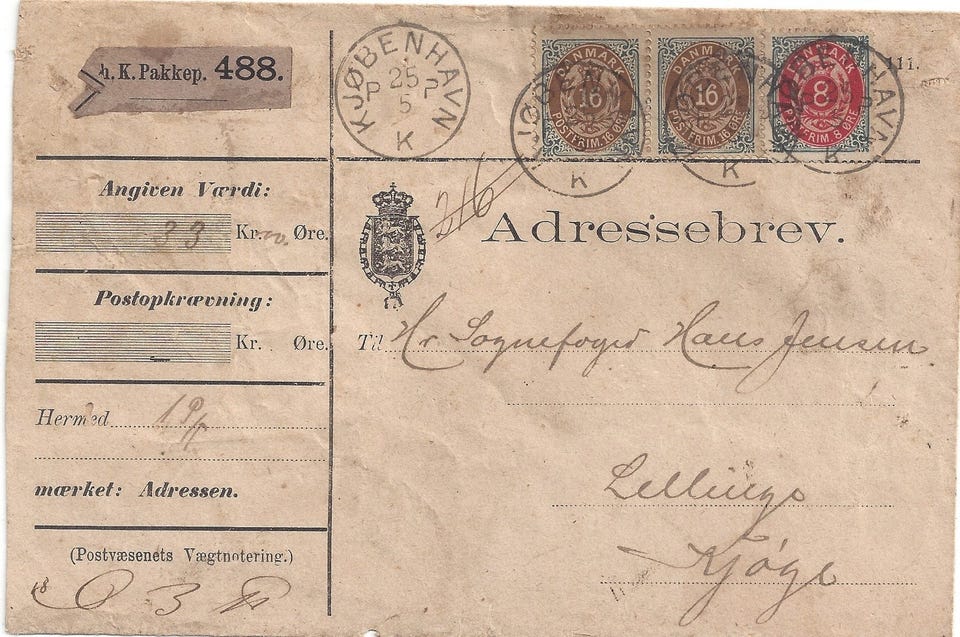 h. K. Pakkep. 488.
KJØBENHAVN
P 25 P
5
K
DANMARK
16
POSTFRIM. 16 ØRE
DANMARK
16
POSTFRIM. 16 ØRE
DANMARK
8
POSTFRIM. 8 ØRE
KJØBENHAVN
K
KJØBENHAVN
K
111.
Angiven Værdi:
33 Kr. Øre.
Postopkrævning:
Kr. Øre.
Hermed 1 P/
mærket: Adressen.
(Postvæsenets Vægtnotering.)
3
Adressebrev.
Til Hr Sognefoged Hans Jensen
Lellinge
Kjøge